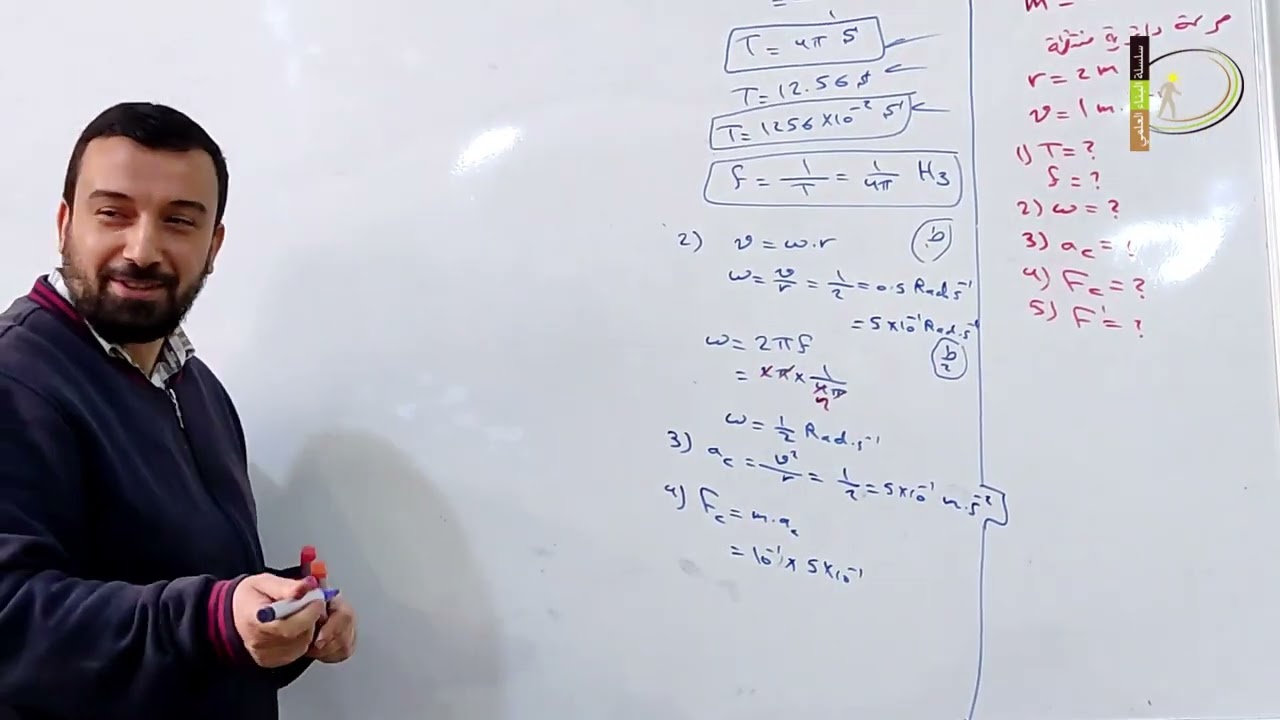 T = 4π S
T = 12.56 S
T = 1256 × 10⁻² S
f = 1/T = 1/4π Hz
2) v = ω.r
ω = v/r = 1/2 = 0.5 Rad.s⁻¹
= 5×10⁻¹ Rad.s⁻¹
ω = 2πf
= 2π × 1/4π
2
ω = 1/2 Rad.s⁻¹
3) a_c = v²/r = 1/2 = 5×10⁻¹ m.s⁻²
4) F_c = m.a_c
= 10⁻¹ × 5×10⁻¹
b
b/2
m =
حركة دائرية منتظمة
r = 2 m
v = 1 m.
1) T = ?
f = ?
2) ω = ?
3) a_c = ?
4) F_c = ?
5) F' = ?
سلسلة البناء العلمي